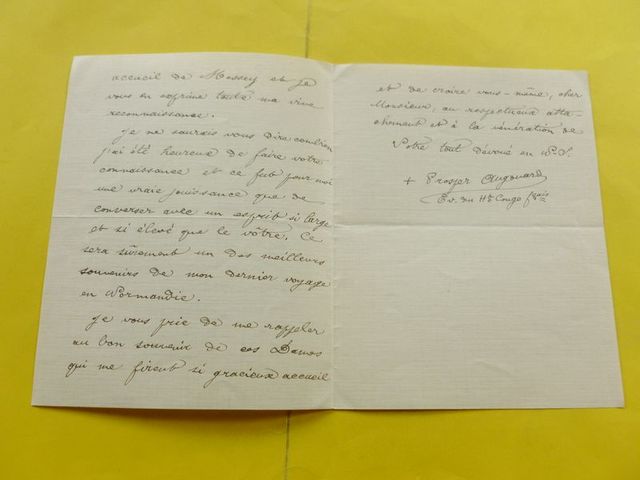 accueil de Messey et je
vous en exprime toute ma vive
reconnaissance.
Je ne saurais vous dire combien
j'ai été heureux de faire votre
connaissance et ce fut pour moi
une vraie jouissance que de
converser avec un esprit si large
et si élevé que le vôtre. Ce
sera sûrement un des meilleurs
souvenirs de mon dernier voyage
en Normandie.
Je vous prie de me rappeler
au bon souvenir de ces Dames
qui me firent si gracieux accueil
et de croire vous-même, cher
Monsieur, au respectueux atta-
chement et à la vénération de
Votre tout dévoué en N.S.
+ Prosper Augouard
Ev. du Ht Congo fçais